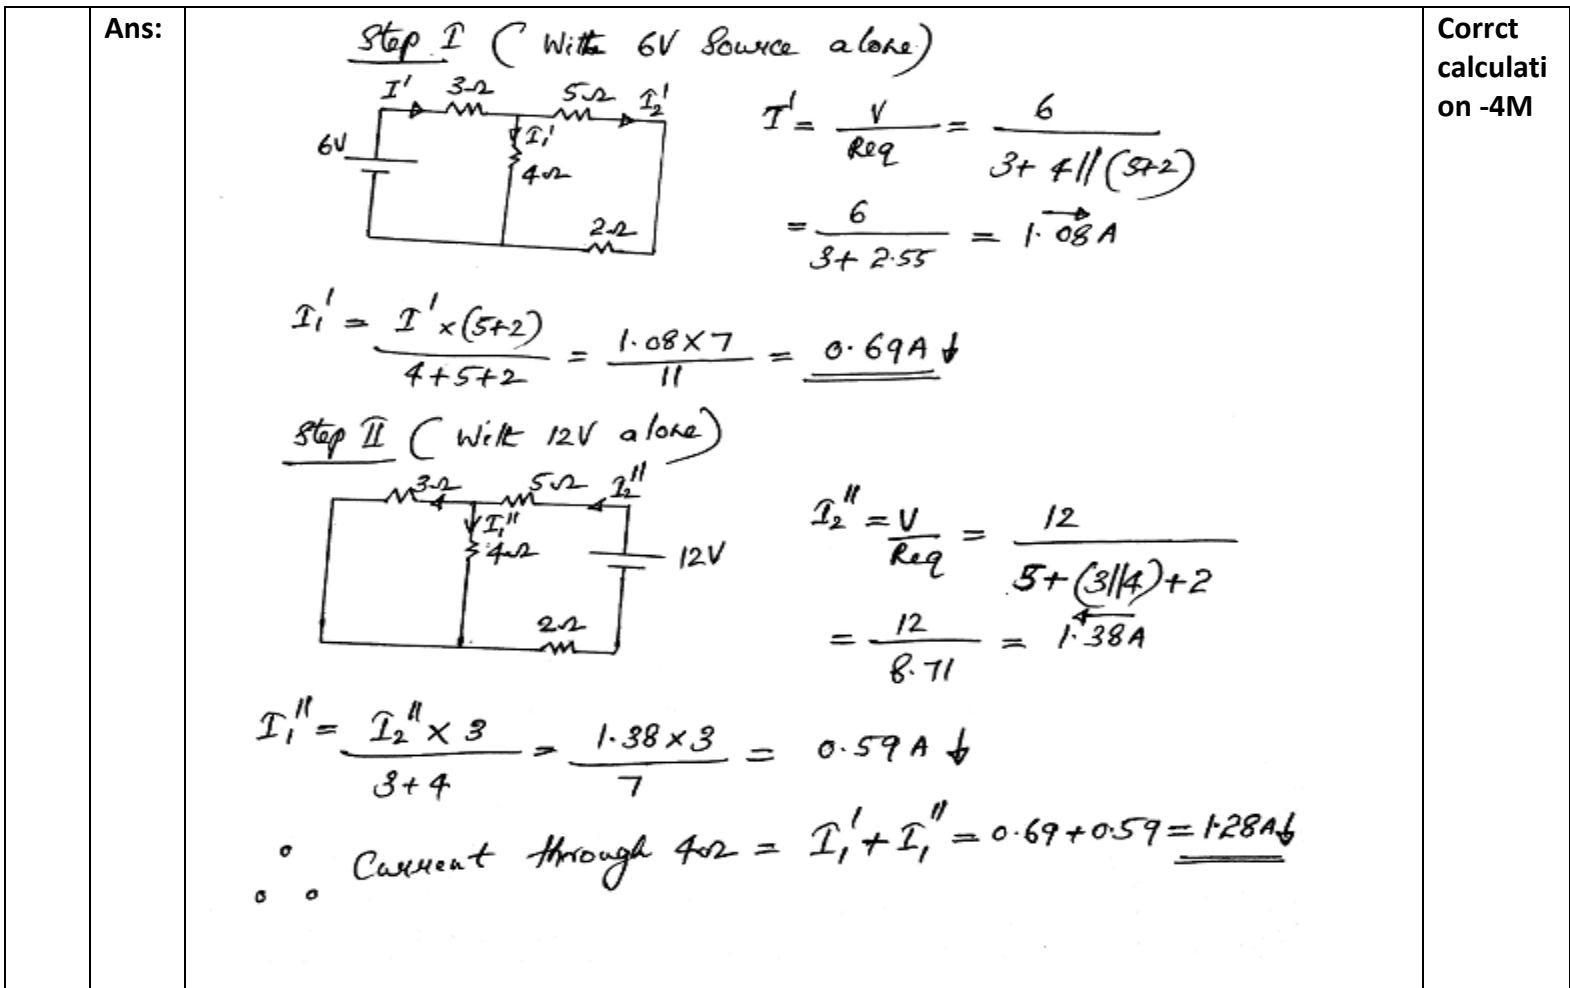 Ans:
Step I (With 6V Source alone)
I' 3Ω 5Ω I₂'
6V I₁' 4Ω
2Ω
I' = V/Req = 6/(3+4||(5+2))
= 6/(3+2.55) = 1.08A
I₁' = I'×(5+2)/(4+5+2) = 1.08×7/11 = 0.69A ↓
Step II (With 12V alone)
3Ω 5Ω I₂"
I₁" 4Ω 12V
2Ω
I₂" = V/Req = 12/(5+(3||4)+2)
= 12/8.71 = 1.38A
I₁" = I₂"×3/(3+4) = 1.38×3/7 = 0.59A ↓
∴ Current through 4Ω = I₁'+I₁" = 0.69+0.59 = 1.28A↓
Corrct
calculati
on -4M